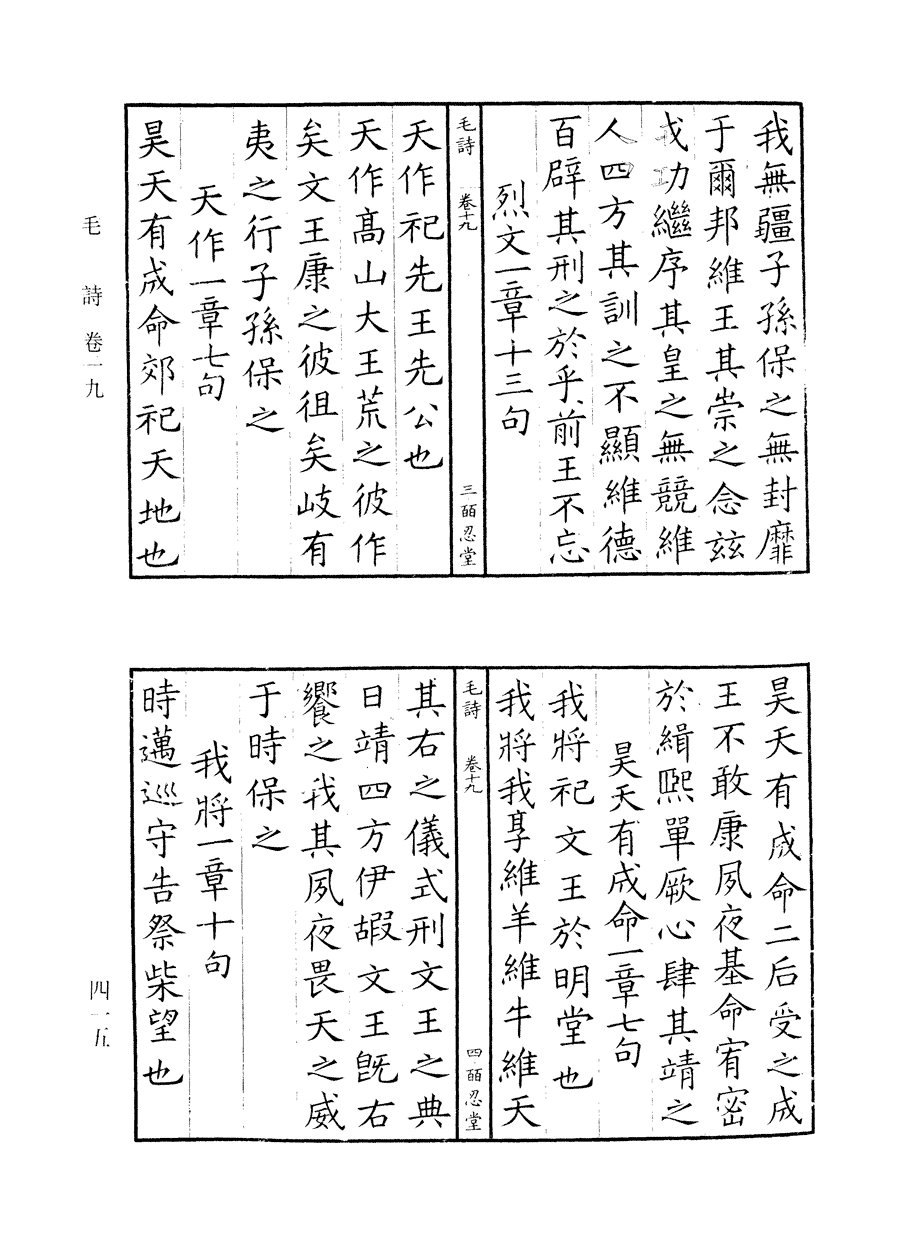 我無疆子孫保之無封靡
于爾邦維王其崇之念茲
戎功繼序其皇之無競維
人四方其訓之不顯維德
百辟其刑之於乎前王不忘
烈文一章十三句
毛詩 卷十九 三 皕忍堂
天作祀先王先公也
天作高山大王荒之彼作
矣文王康之彼徂矣岐有
夷之行子孫保之
天作一章七句
昊天有成命郊祀天地也
毛詩卷一九
昊天有成命二后受之成
王不敢康夙夜基命宥密
於緝熙單厥心肆其靖之
昊天有成命一章七句
我將祀文王於明堂也
我將我享維羊維牛維天
毛詩 卷十九 四 皕忍堂
其右之儀式刑文王之典
日靖四方伊嘏文王既右
饗之我其夙夜畏天之威
于時保之
我將一章十句
時邁巡守告祭柴望也
四一五